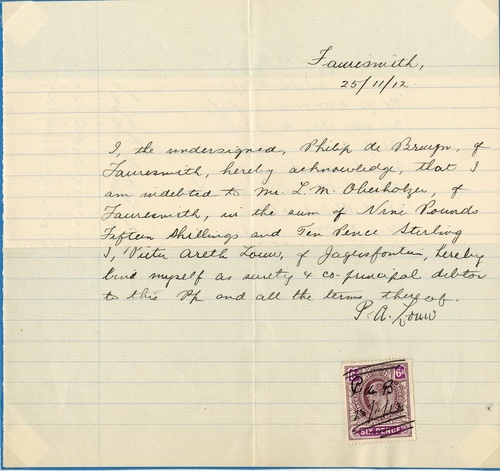 Fauresmith,
25/11/12.
I, the undersigned, Philip de Bruyn, of
Fauresmith, hereby acknowledge, that I
am indebted to Mr. L. M. Oberholzer, of
Fauresmith, in the sum of Nine Pounds
Fifteen Shillings and Ten Pence Sterling
I, Pieter Areth Louw, of Jagersfontein, hereby
bind myself as surety & co-principal debtor
to this and all the terms thereof.
P. A. Louw
6D
P de B
25/11/12
SIX PENCE